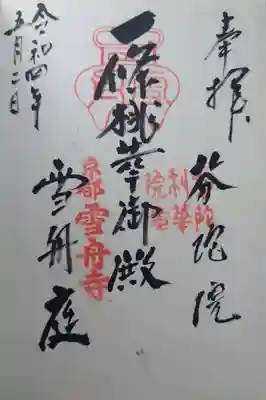 奉拝
芬陀院
一條桃華御殿
利華
院
京都雪舟寺
雪舟庭
令和四年
五月二日